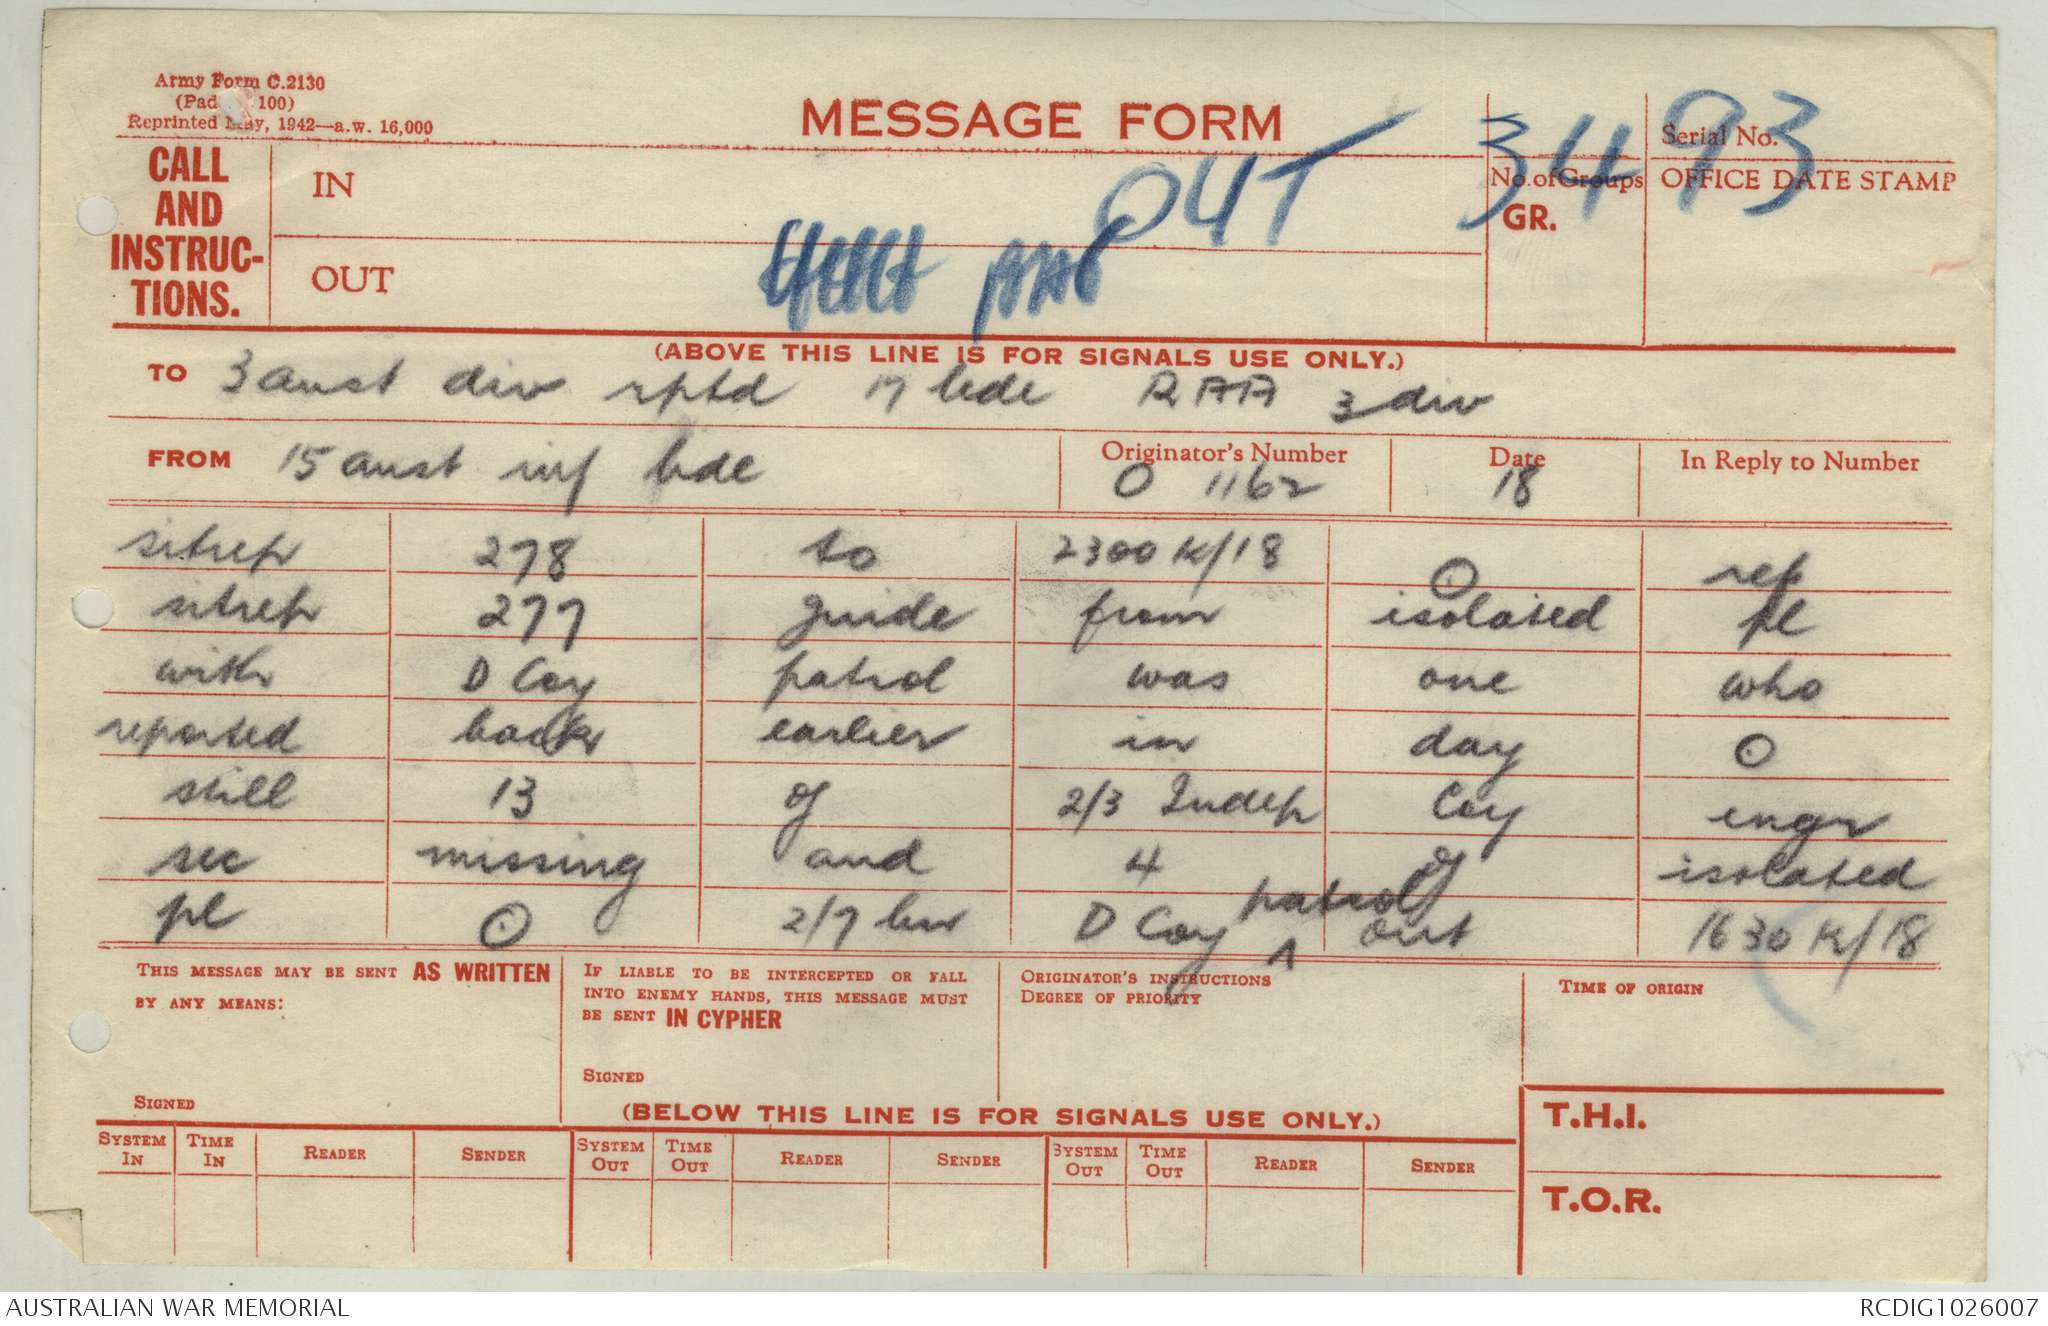 Army Form C.2130
(Pad 100)
Reprinted May, 1942—a.w. 16,000
MESSAGE FORM
3493
Serial No.
CALL AND INSTRUC-TIONS.
IN
OUT
OUT
No. of Groups
GR.
OFFICE DATE STAMP
(ABOVE THIS LINE IS FOR SIGNALS USE ONLY.)
TO 3 aust div rptd 17 bde RAA 3 div
FROM 15 aust inf bde
Originator's Number O 1162
Date 18
In Reply to Number
sitrep 278 to 2300 K/18 ⊙ rep
sitrep 277 guide from isolated pl
with D Coy patrol was one who
reported back earlier in day ⊙
still 13 of 2/3 Indep Coy engr
sec missing and 4 of isolated
pl ⊙ 2/7 bn D Coy patrol out 1630 K/18
THIS MESSAGE MAY BE SENT AS WRITTEN
BY ANY MEANS:
SIGNED
IF LIABLE TO BE INTERCEPTED OR FALL
INTO ENEMY HANDS, THIS MESSAGE MUST
BE SENT IN CYPHER
SIGNED
ORIGINATOR'S INSTRUCTIONS
DEGREE OF PRIORITY
TIME OF ORIGIN
(BELOW THIS LINE IS FOR SIGNALS USE ONLY.)
SYSTEM IN TIME IN READER SENDER SYSTEM OUT TIME OUT READER SENDER SYSTEM OUT TIME OUT READER SENDER
T.H.I.
T.O.R.
AUSTRALIAN WAR MEMORIAL
RCDIG1026007